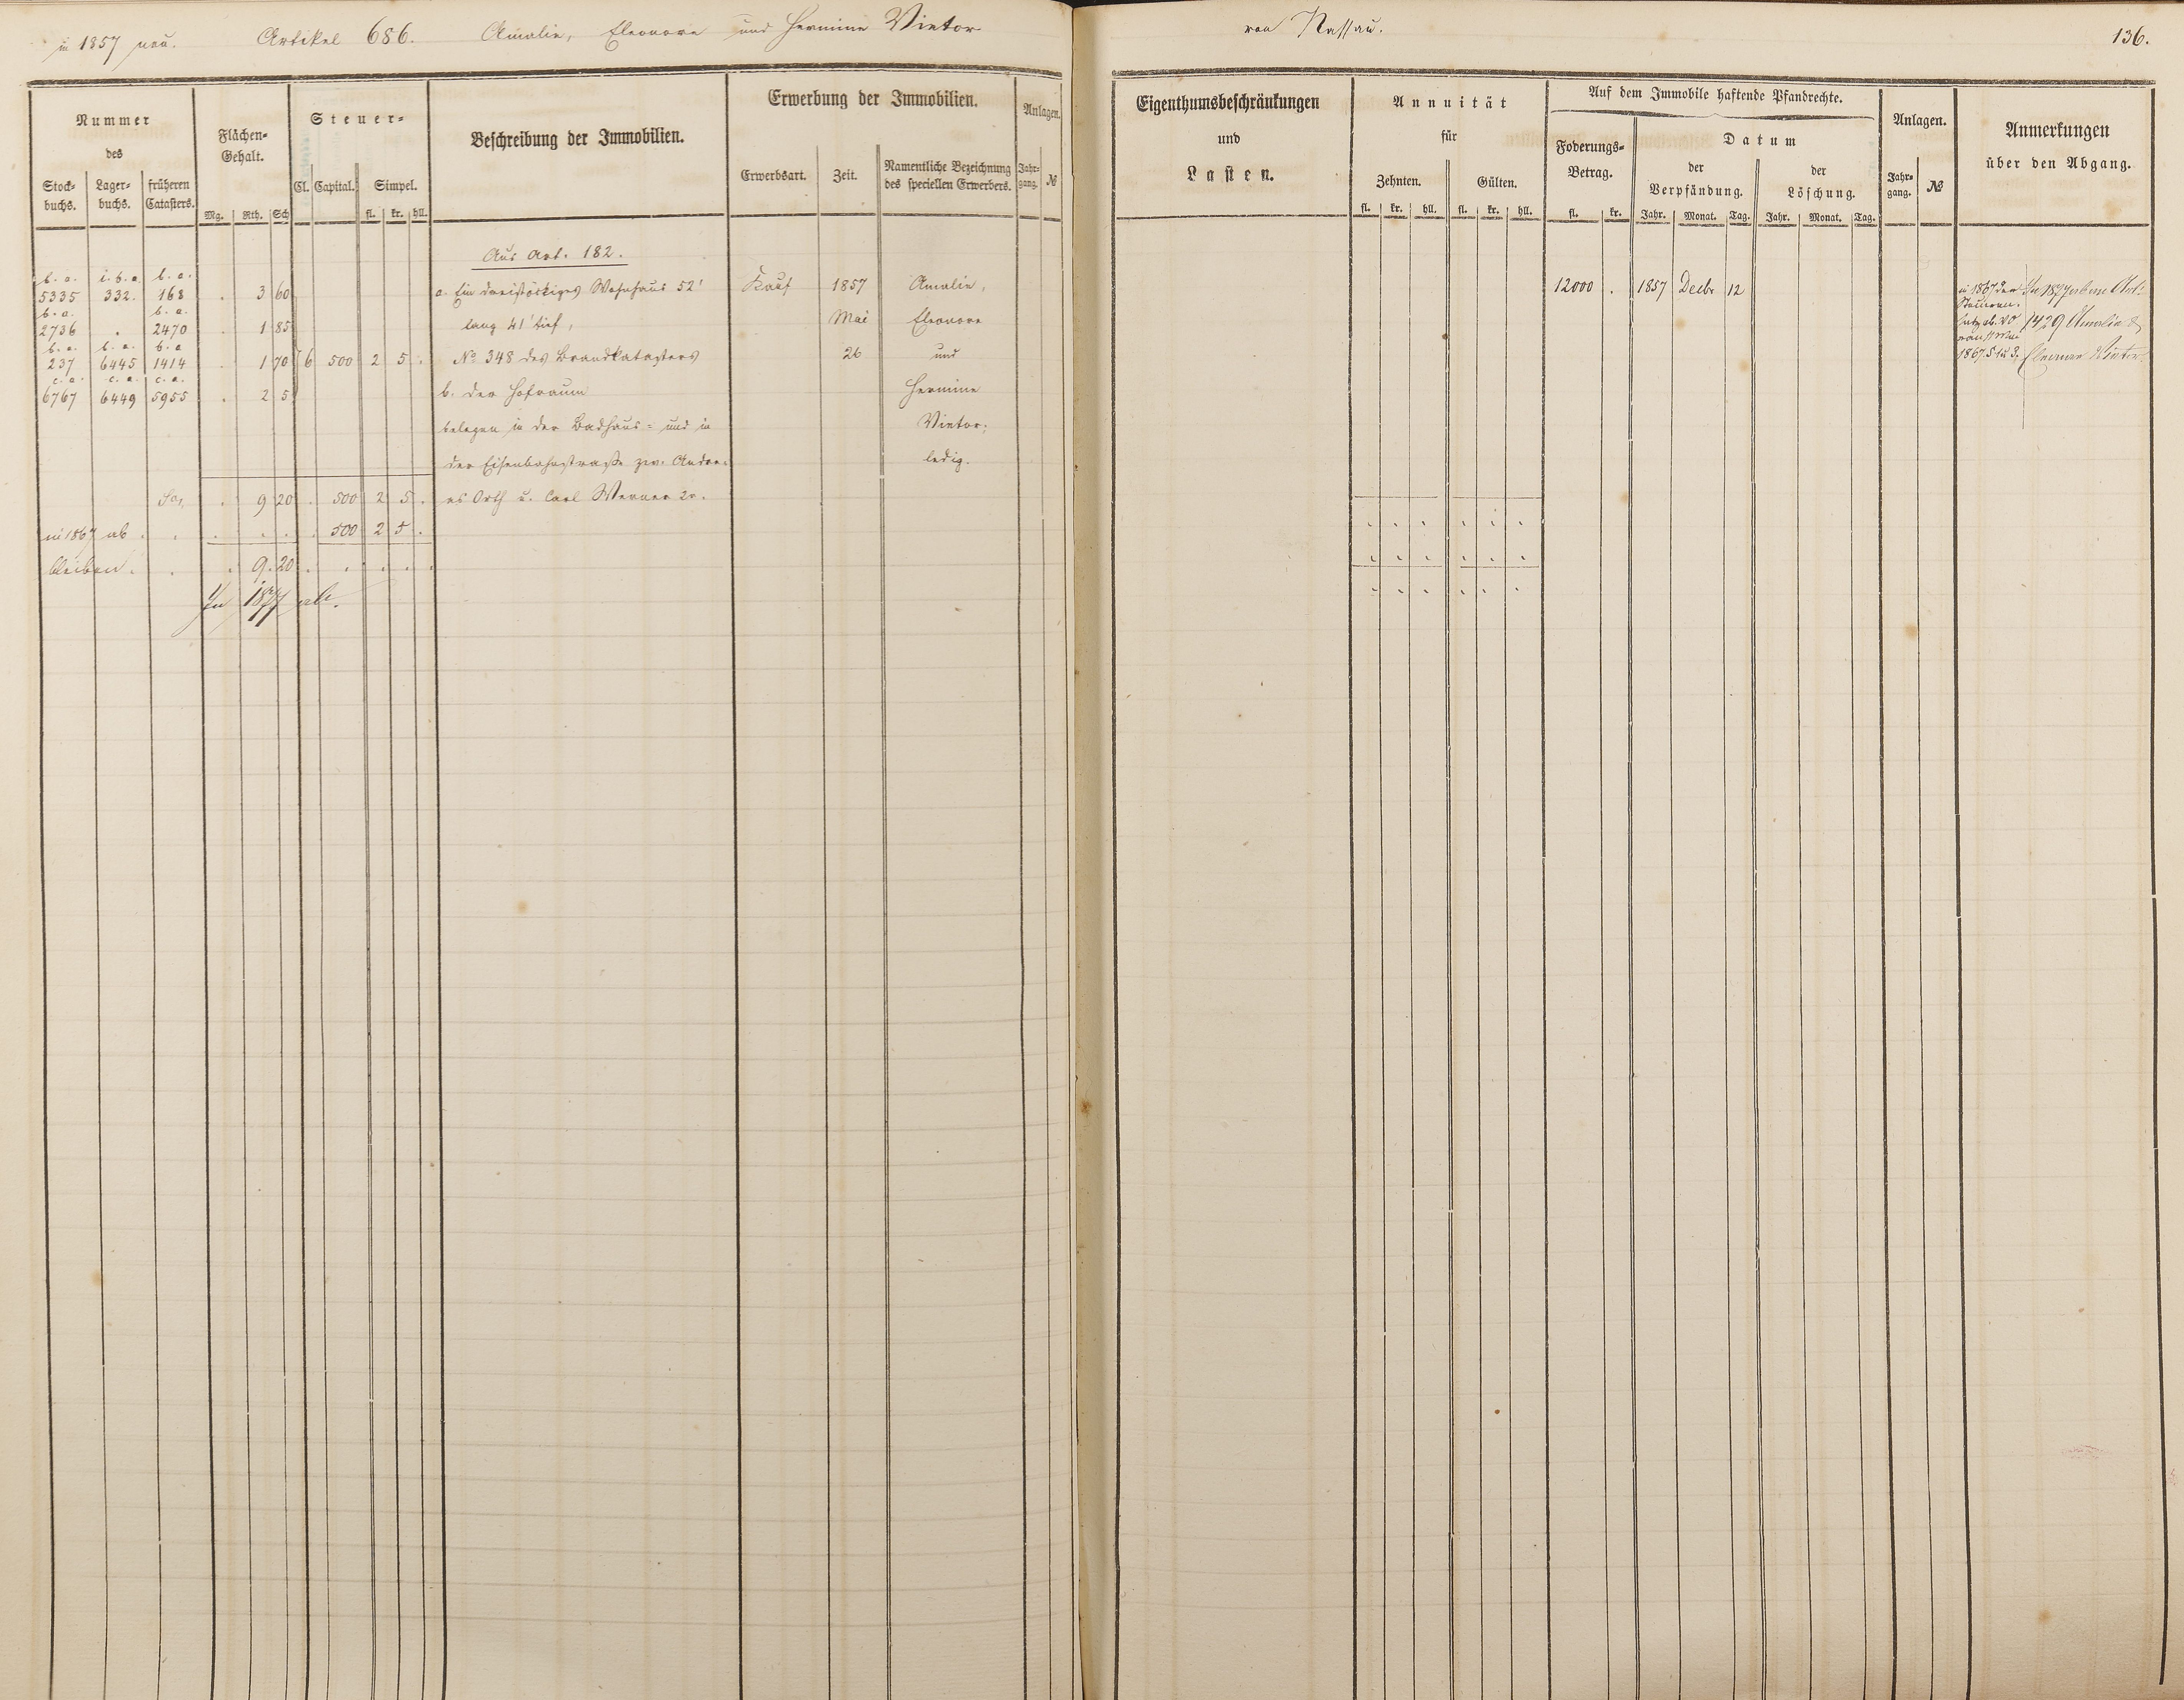 in 1857 neu. Artikel 686. Amalie, Eleonore und Hermine Vietor
von Nassau. 136.
Nummer
des
Stock-
buchs.
Lager-
buchs.
früheren
Catasters.
Flächen-
Gehalt.
Mg. Rth. Sch
Steuer-
Cl. Capital. Simpel.
fl. kr. hll.
Beschreibung der Immobilien.
Erwerbung der Immobilien.
Erwerbsart. Zeit.
Namentliche Bezeichnung
des speciellen Erwerbers.
Anlagen.
Jahr-
gang. №
Aus Art. 182.
b. a. i. b. a b. a.
5335 332. 168 . 3 60 a. Ein dreistöckiges Wohnhaus 52' Kauf 1857 Amalie,
b. a. b. a.
2736 . 2470 . 1 85 lang 41' tief, Mai Eleonore
b. a. b. a. b. a
237 6445 1414 . 1 70 6 500 2 5 . No 348 des Brandkatasters 26 und
c. a. c. a. c. a.
6767 6449 5955 . 2 5 b. der Hofraum Hermine
belegen in der Badhaus- und in Vietor,
der Eisenbahnstraße zw. Andre- ledig.
Sa, . 9 20 . 500 2 5 . as Orth u. Carl Werner 2r.
in 1867 ab . . . . . . 500 2 5 .
bleiben . . . 9. 20 . . . . .
In 1877 ab.
Eigenthumsbeschränkungen
und
Lasten.
Annuität
für
Zehnten. Gülten.
fl. kr. hll. fl. kr. hll.
Auf dem Immobile haftende Pfandrechte.
Foderungs-
Betrag.
fl. kr.
Datum
der
Verpfändung.
Jahr. Monat. Tag.
der
Löschung.
Jahr. Monat. Tag.
Anlagen.
Jahr-
gang. №
Anmerkungen
über den Abgang.
12000 . 1857 Decbr 12
in 1867 der
Steueran-
satz ab. VO
1867. § 1 u 3.
In 1877 Art.
1429 Amalie &
Eleonore Vietor